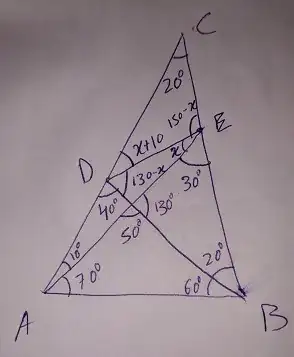 C
20°
150-x
E
x+10
x
D
130-x
30°
40°
130°
50°
10°
20°
70°
60°
A
B